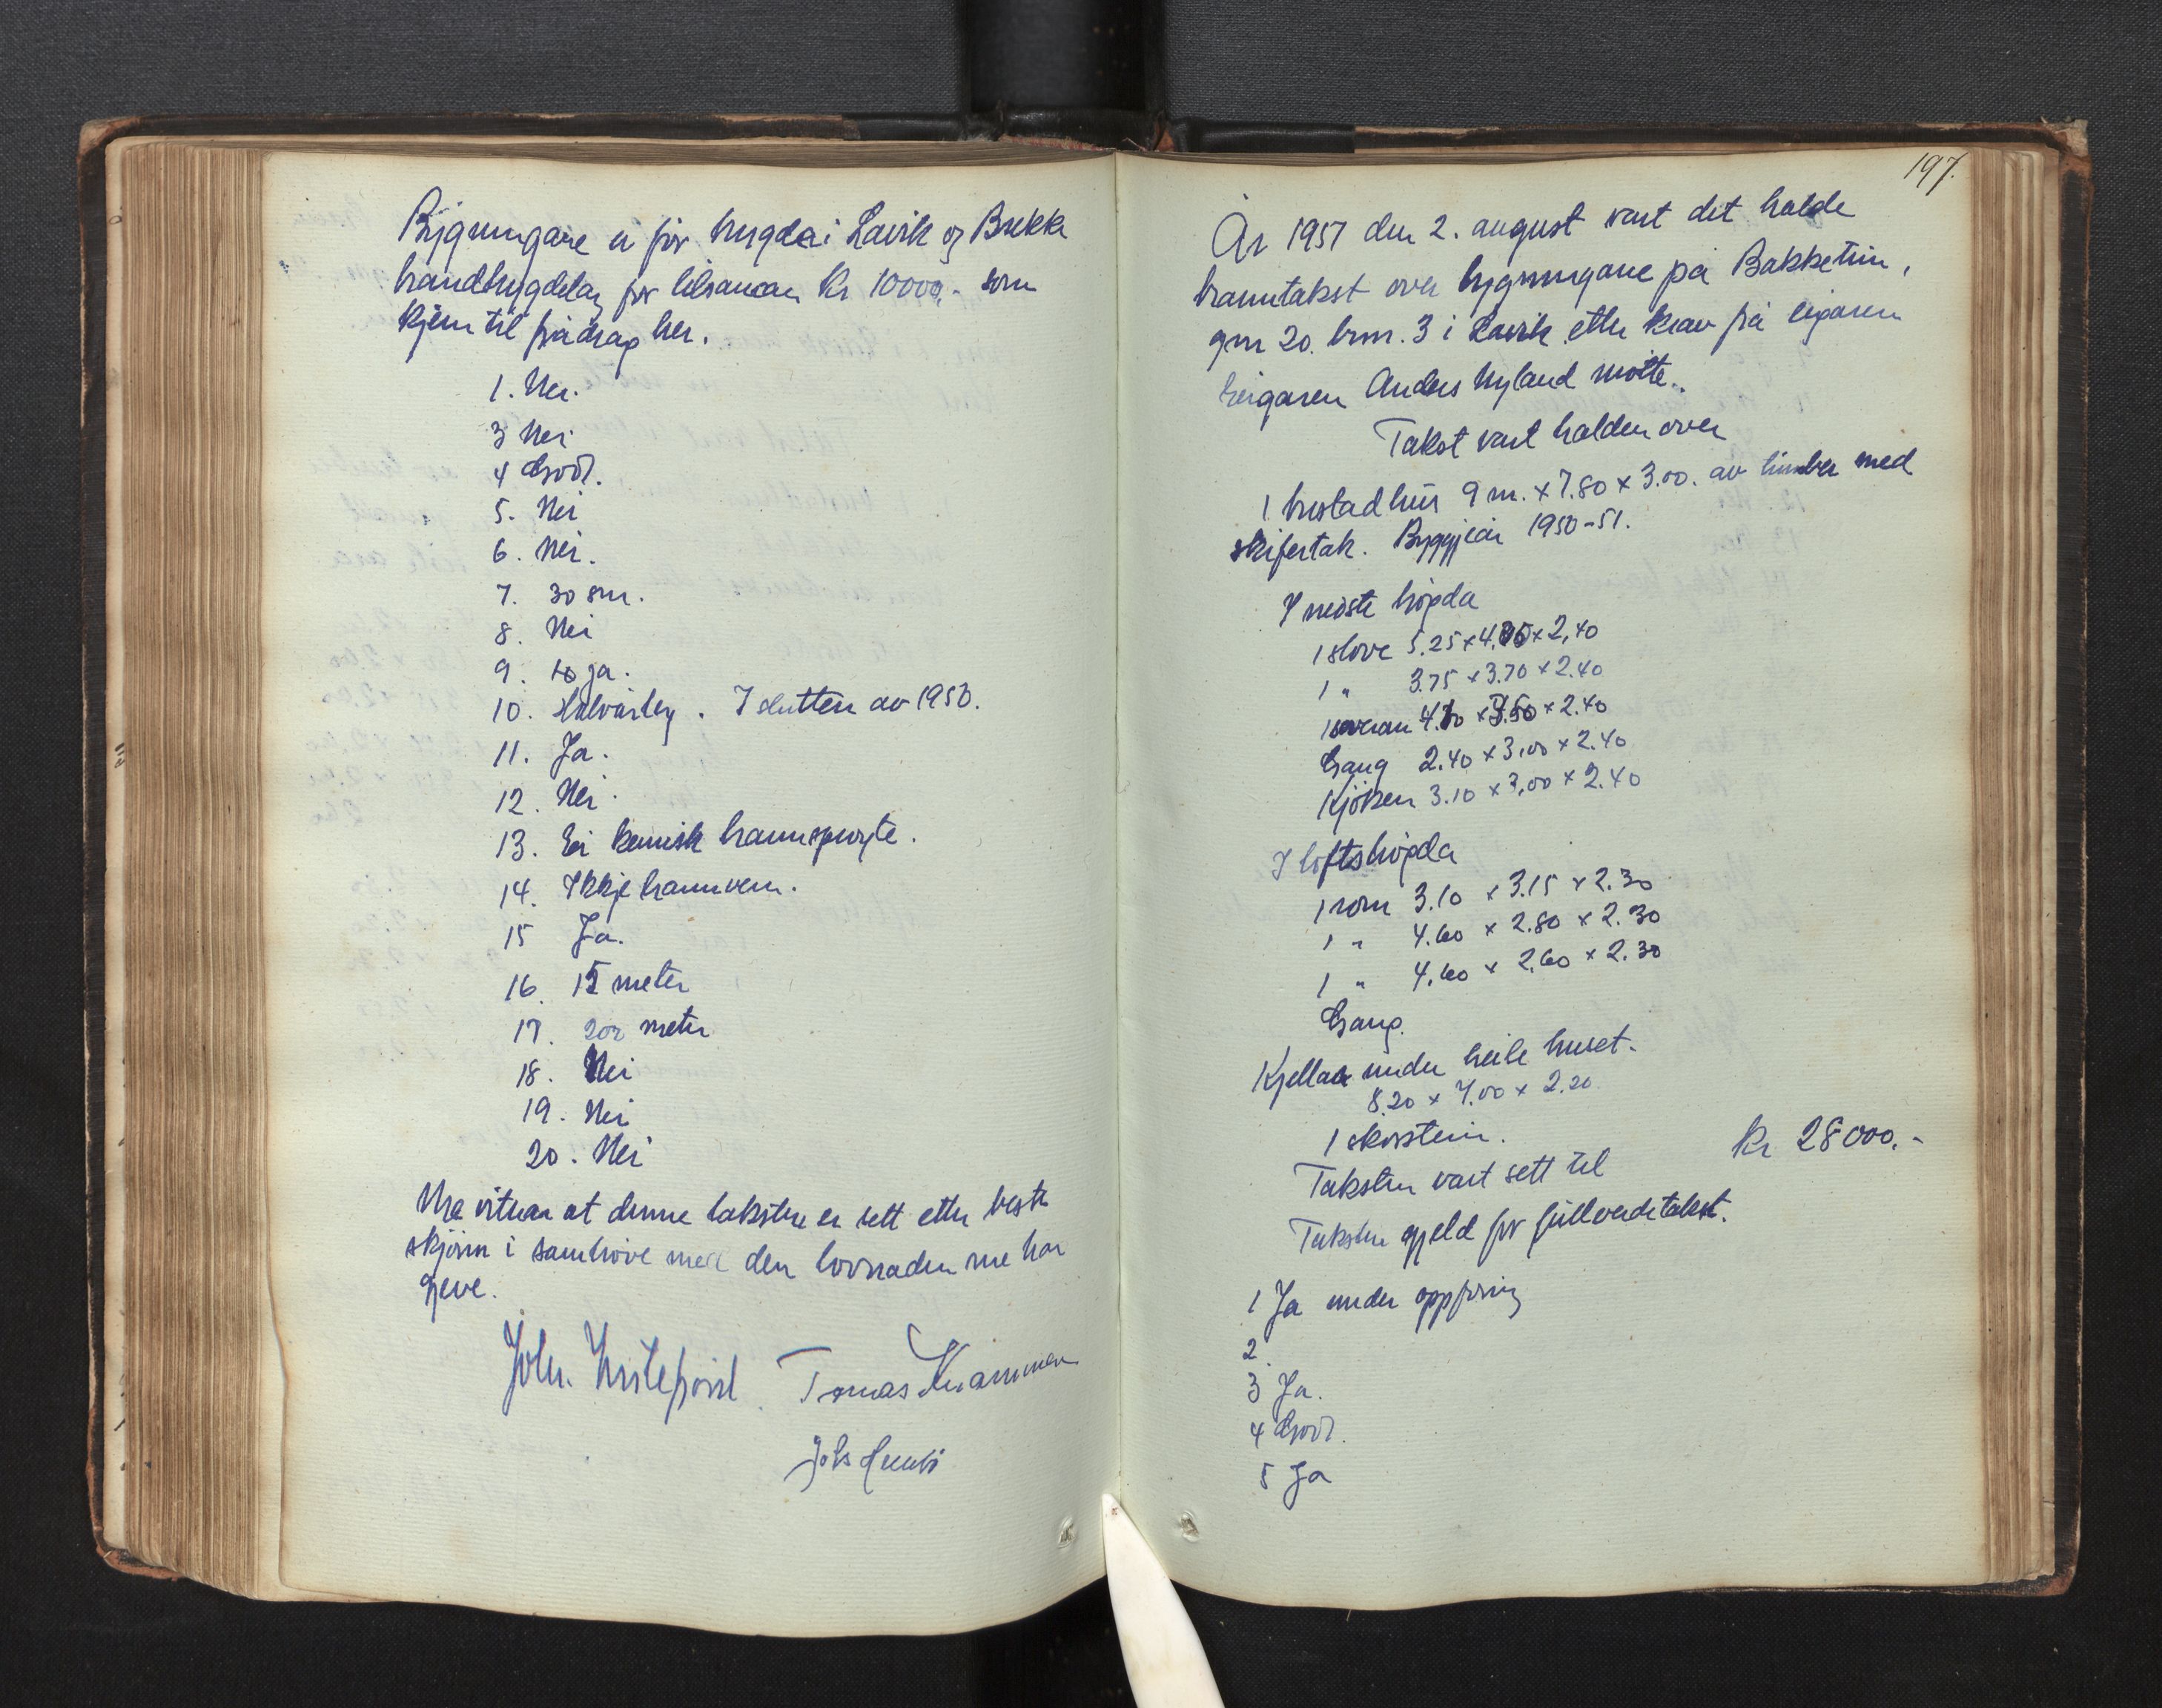 Bygnungane er før trygda i Lavik og Brekke
brandtrygdelag for tilsaman kr 10000,- som
kjem til frådrag her.
1. Nei.
3 Nei
4 God.
5. Nei
6. Nei.
7. 30 sm.
8. Nei
9. ja.
10. . I slutten av 1950.
11. Ja.
12. Nei.
13. Ei kemisk brannsprøyte.
14. Ikkje brannvern.
15 Ja.
16. 15 meter
17. 200 meter
18. Nei
19. Nei
20. Nei
Me vitnar at denne taksten er sett etter beste
skjøn i samhøve med den lovnaden me har
gjeve.
Joh. Tomas Kvammen
Johs
197.
År 1957 den 2. august vart det halde
branntakst over bygnungane på Bakketun,
gnr 20. brnr. 3 i Lavik etter krav frå eigaren
Eigaren Anders Nyland møtte.
Takst vart halden over
1 bustadhus 9 m. x 7.80 x 3.00. av timber med
skifertak. Byggjeår 1950-51.
I neiste høgda
1 stove 5.25 x 4.05 x 2,40
1 " 3.75 x 3.70 x 2.40
1 soveram 4.10 x 3.50 x 2.40
Gang 2.40 x 3,00 x 2.40
Kjøken 3.10 x 3,00 x 2.40
I loftshøgda
1 rom 3.10 x 3.15 x 2.30
1 " 4.60 x 2.80 x 2.30
1 " 4.60 x 2.60 x 2.30
Gang.
Kjellar under heile huset.
8.20 x 7.00 x 2.20
1 skorstein.
Taksten vart sett til kr 28000.-
Taksten gjeld for fullverdetakst.
1 Ja under oppføring
2.
3 Ja.
4 God.
5 Ja